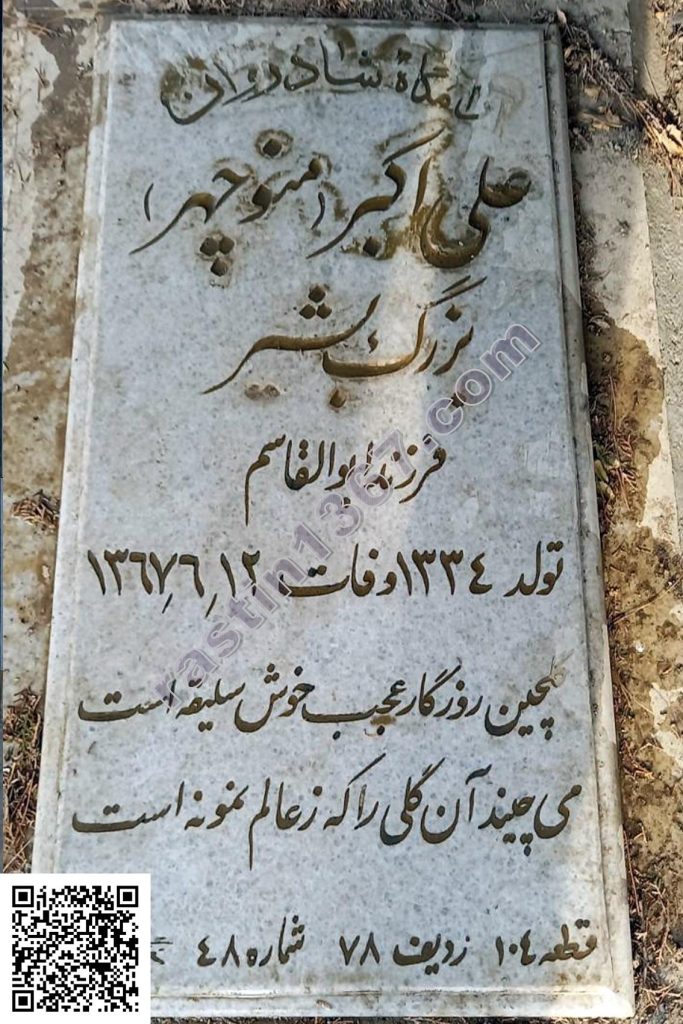 آرامگاه شادروان
علی اکبر (منوچهر)
بزرگ بشیر
فرزند ابوالقاسم
تولد ۱۳۳٤ وفات ۱۲٫٦٫۱۳٦۷
گلچین روزگار عجب خوش سلیقه است
می چیند آن گلی را که ز عالم نمونه است
قطعه ۱۰٤ ردیف ۷۸ شماره ٤۸
rastin1367.com